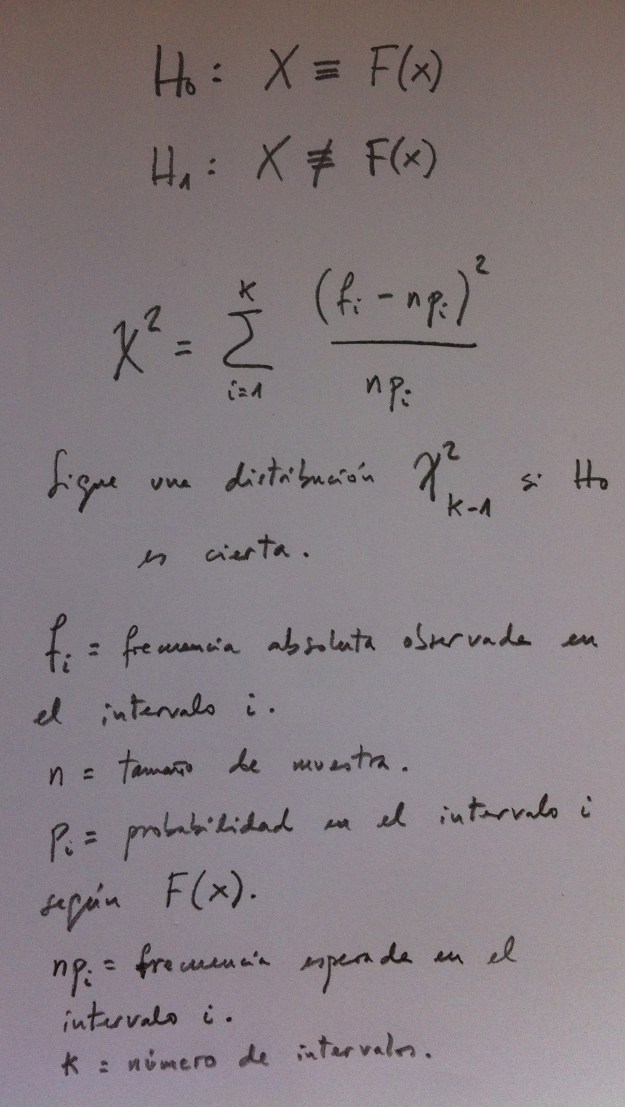 H₀: X ≡ F(x)
H₁: X ≢ F(x)
χ² = ∑ᵢ₌₁ᵏ (fᵢ - npᵢ)² / npᵢ
Sigue una distribución χ²ₖ₋₁ si H₀
es cierta.
fᵢ = frecuencia absoluta observada en
el intervalo i.
n = tamaño de muestra.
pᵢ = probabilidad en el intervalo i
según F(x).
npᵢ = frecuencia esperada en el
intervalo i.
k = número de intervalos.